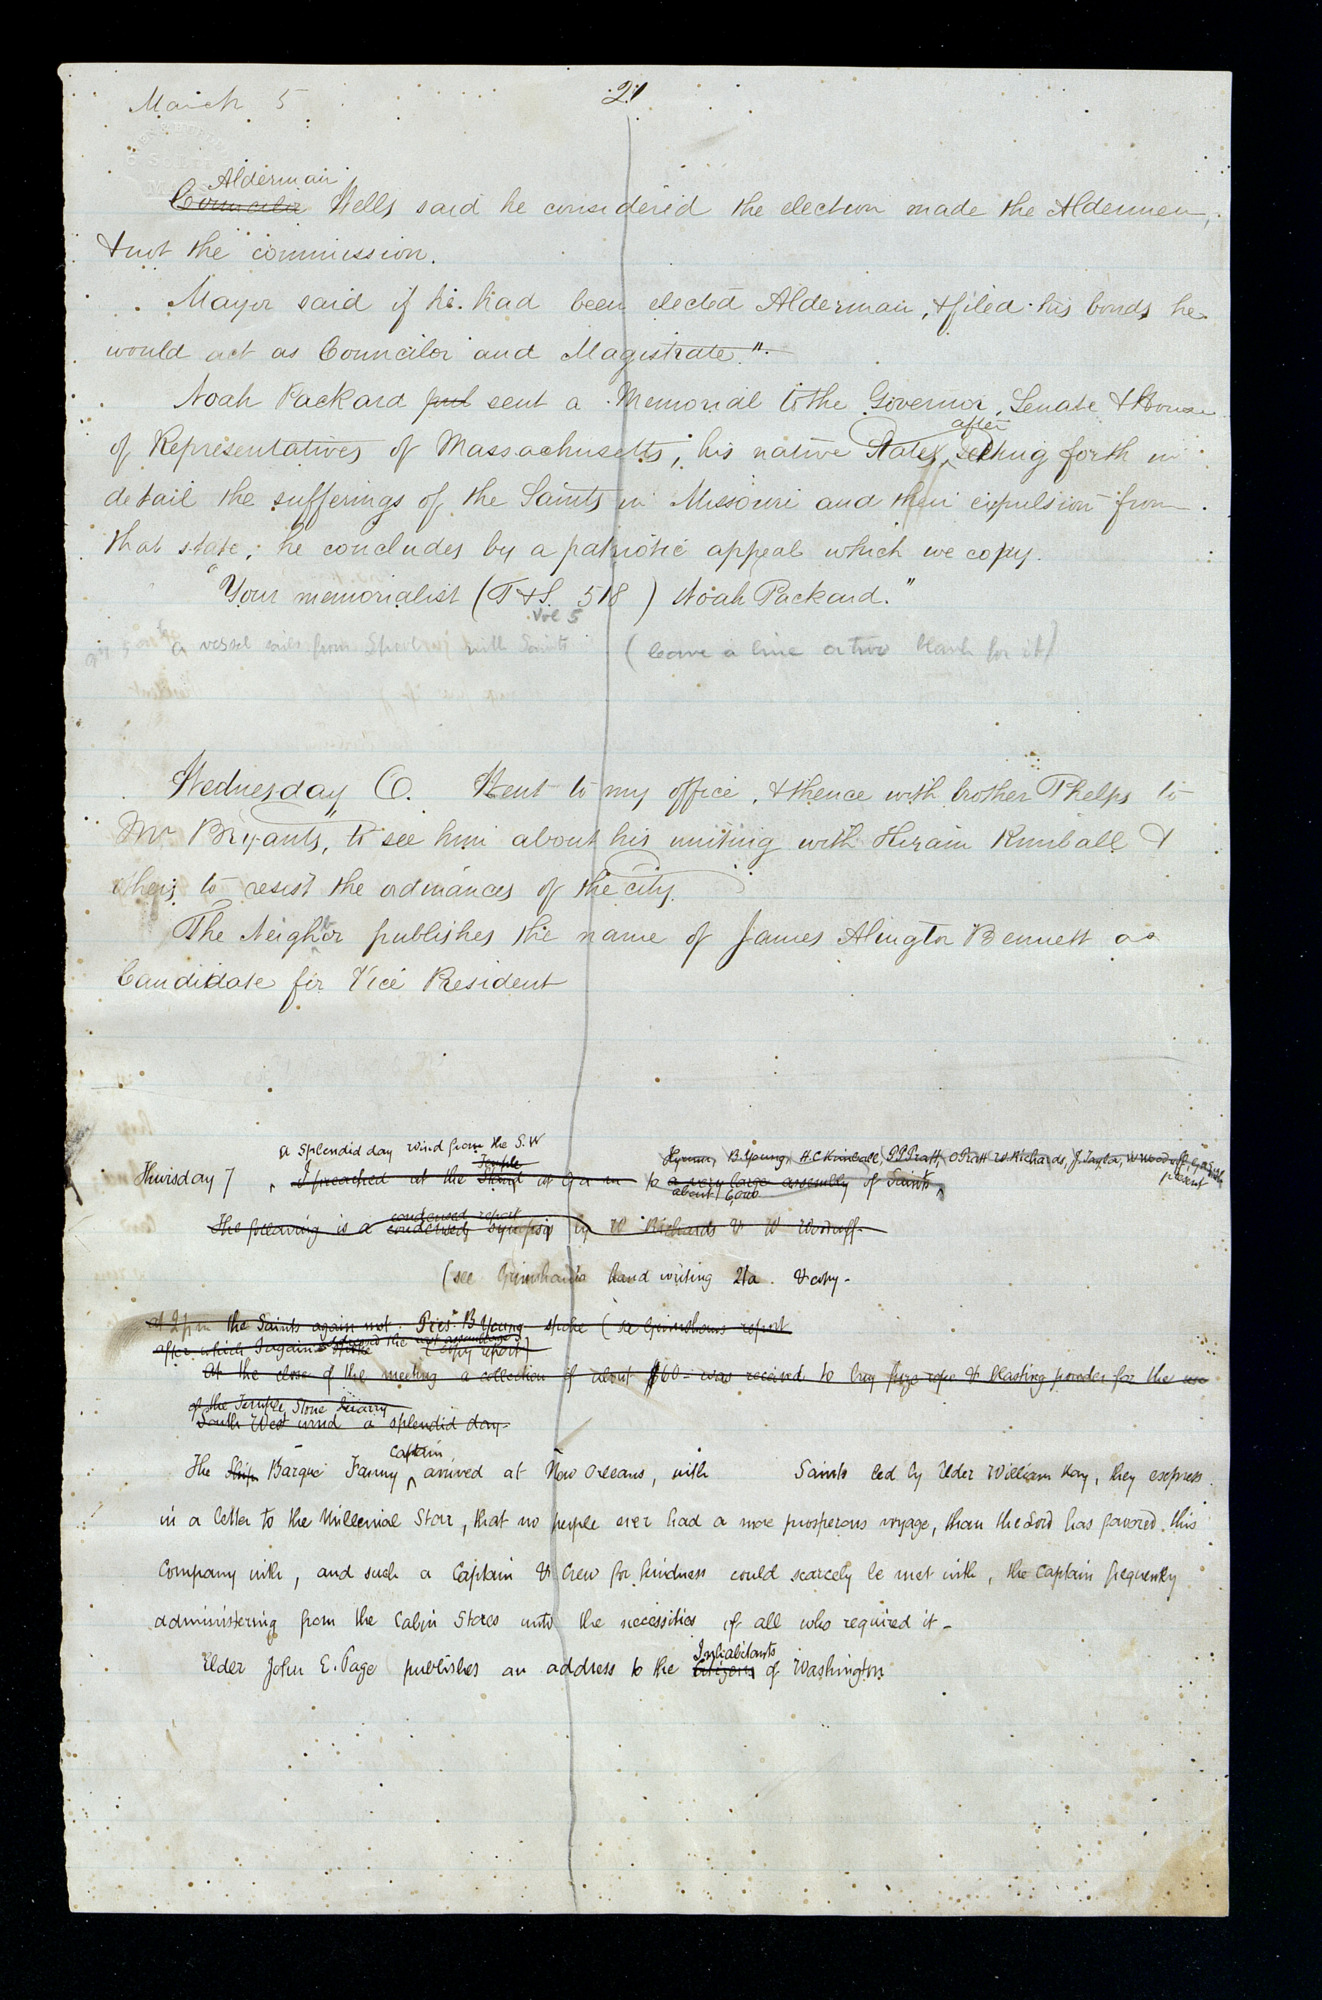 March 5
21
Alderman
Councilor Wells said he considered the election made the Aldermen,
& not the commission.
Mayor said if he had been elected Alderman, & filed his bonds, he
would act as Councilor and Magistrate."
Noah Packard sent a Memorial to the Governor, Senate & House
after
of Representatives of Massachusetts, his native State, setting forth in
detail the sufferings of the Saints in Missouri and their expulsion from
that state; he concludes by a patriotic appeal which we copy.
"Your memorialist (T & S. 518) Noah Packard."
Vol 5
a vessel sails from Liverpool with Saints (leave a line or two blank for it)
Wednesday 6. Went to my office, & thence with brother Phelps to
Mr Bryants, to see him about his uniting with Hiram Kimball &
others to resist the ordinances of the city.
The Neighbor publishes the name of James Alington Bennett as
Candidate for Vice President
a splendid day wind from the S.W
Temple Hyrum, B Young, H. C Kimball, P P Pratt, O Pratt W. Richards, J. Taylor, W Woodruff,
present
Thursday 7 I preached at the Stand to a very large assembly of Saints
about 6,000
condensed report
The following is a condensed synopsis by W Richards & W Woodruff.
(see Grimshaw's hand writing 21a. & copy-
at 2 pm the Saints again met. Prest B Young spoke (see Grimshaws report
addressed the vast assemblage
after which I again spoke (copy report)
At the close of the meeting a collection of about $60- was received to buy fuze rope & blasting powder for the use
of the Temple Stone Quarry
South West wind a splendid day-
Captain
The Ship Barque Fanny arrived at New Orleans, with Saints led by Elder William Kay, they express
in a letter to the Millenial Star, that no people ever had a more prosperous voyage, than the Lord has favored this
Company with, and such a Captain & Crew for kindness could scarcely be met with, the Captain frequently
administering from the Cabin Stores unto the necessities of all who required it-
Inhabitants
Elder John E. Page publishes an address to the Citizens of Washington